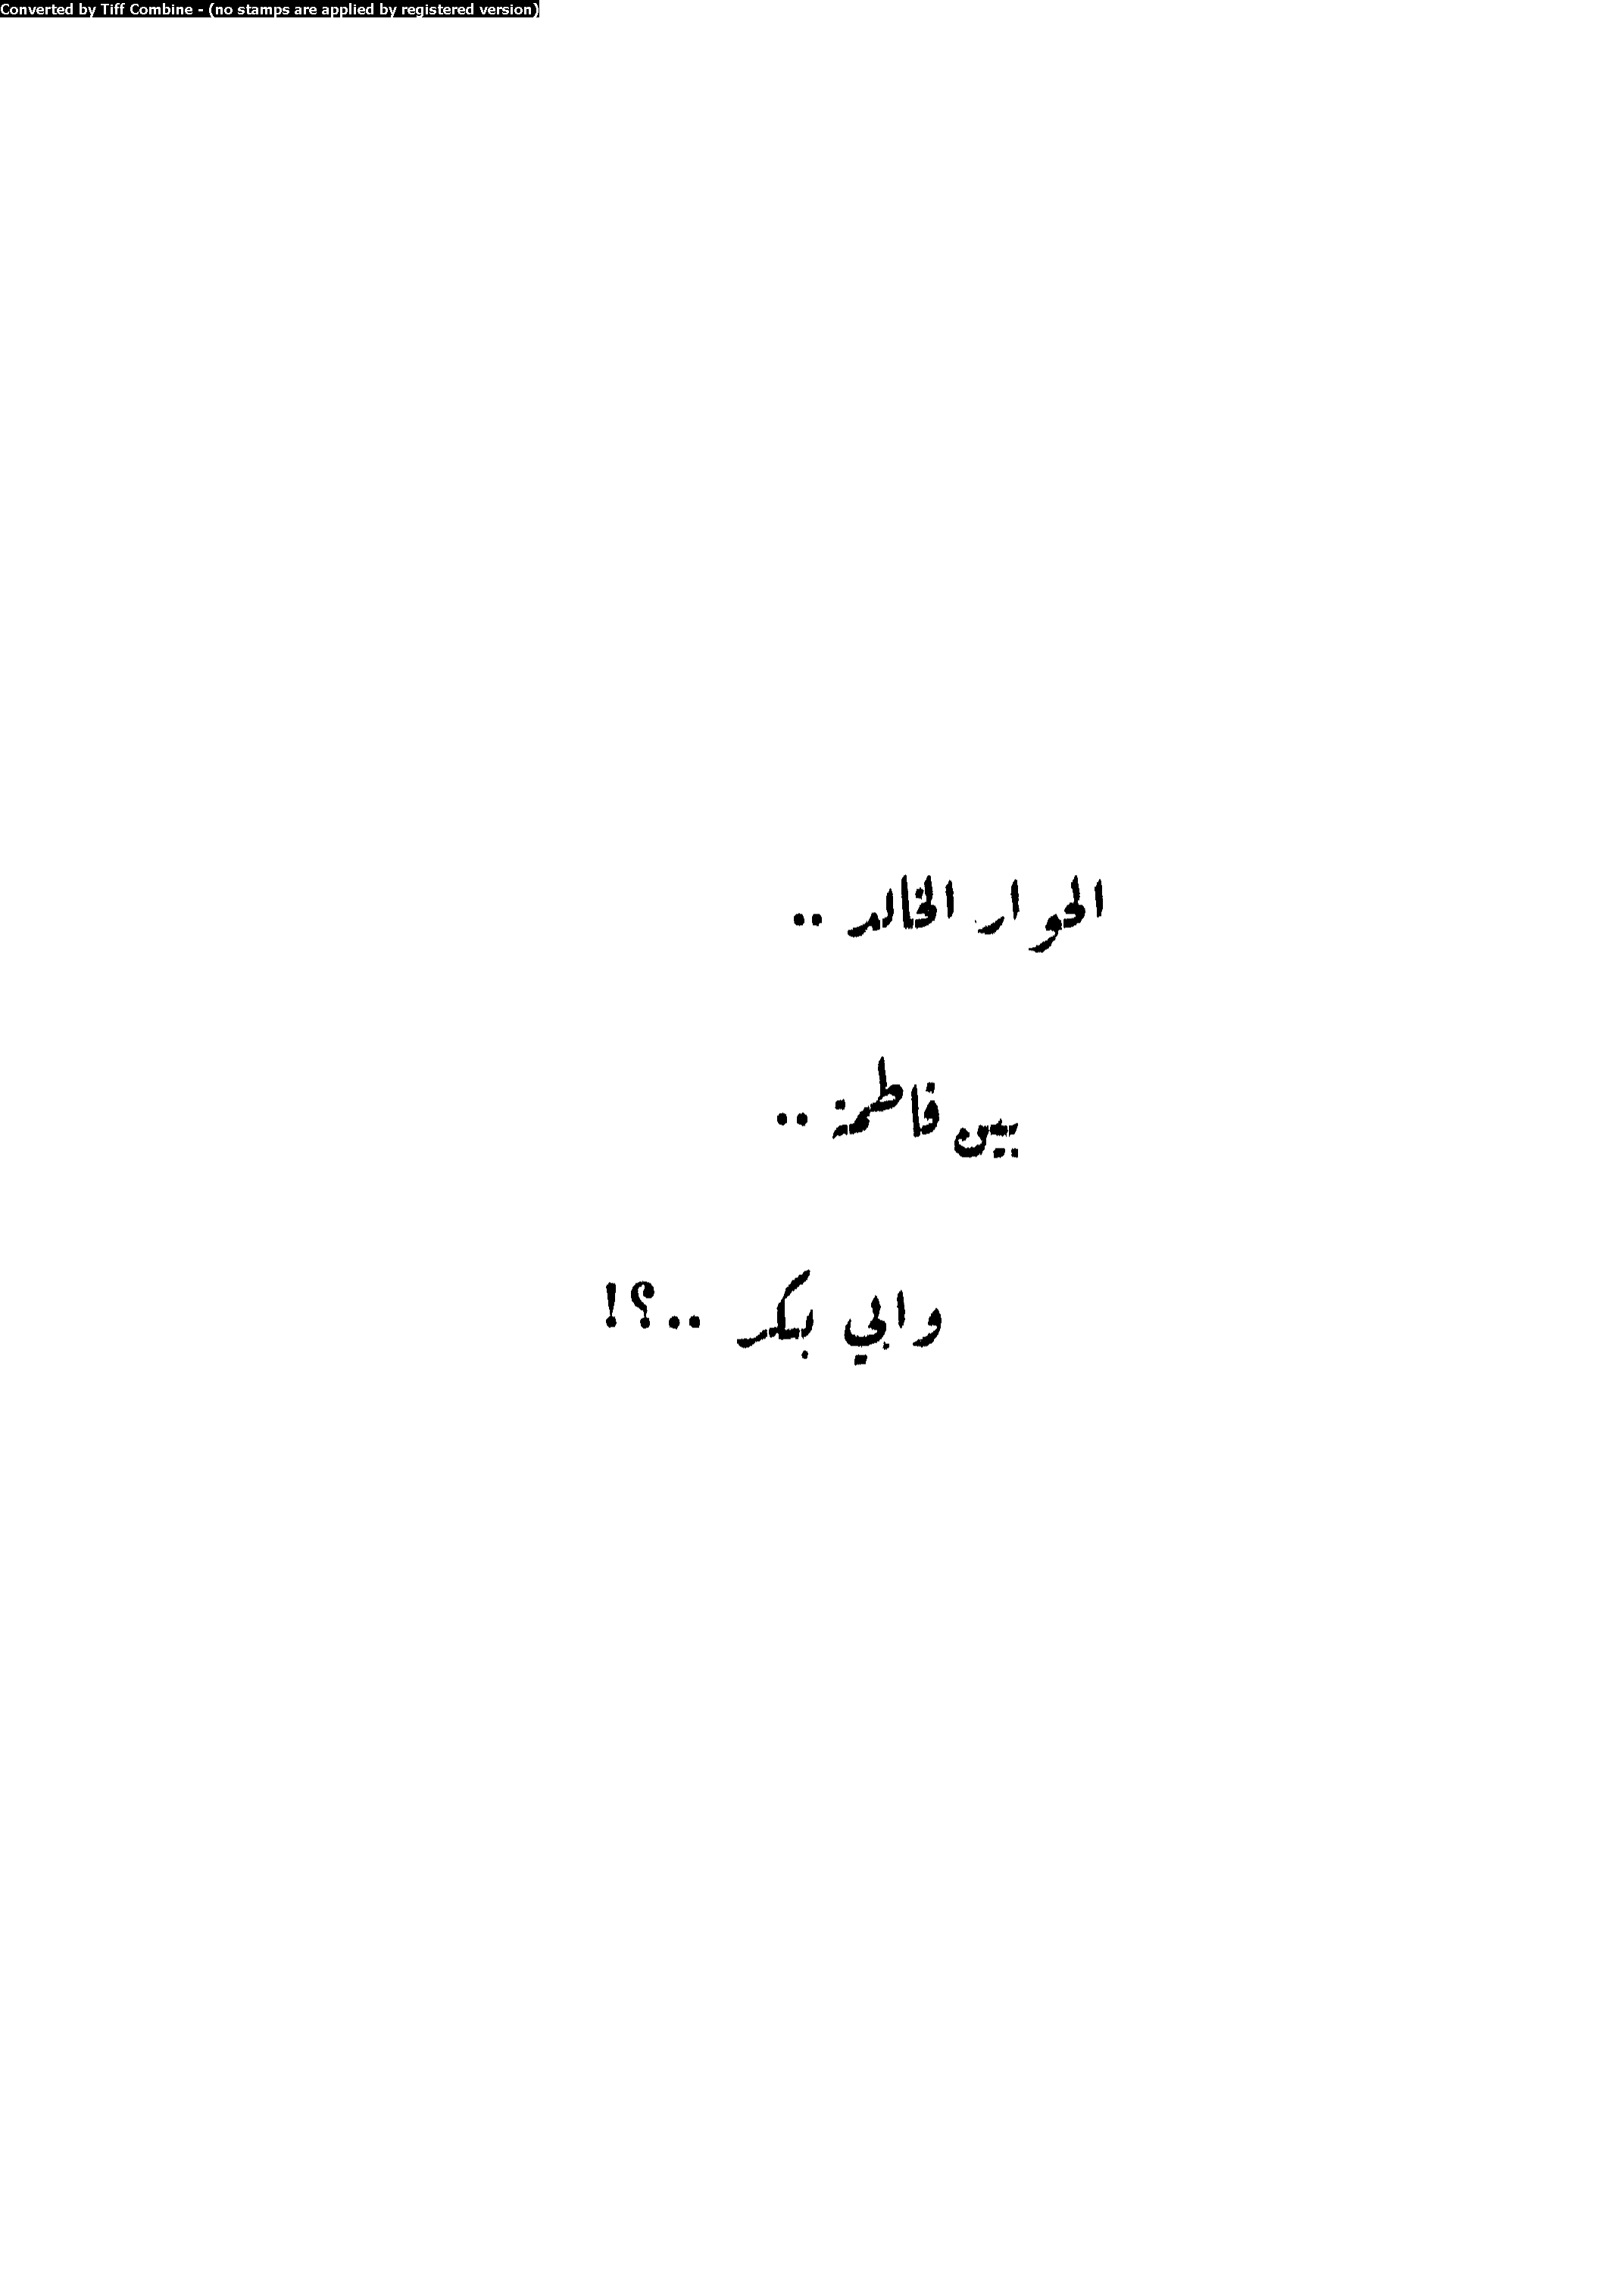 Converted by Tiff Combine - (no stamps are applied by registered version)
الحوار الخالد ..
بين فاطمة ..
وابي بكر ..؟!